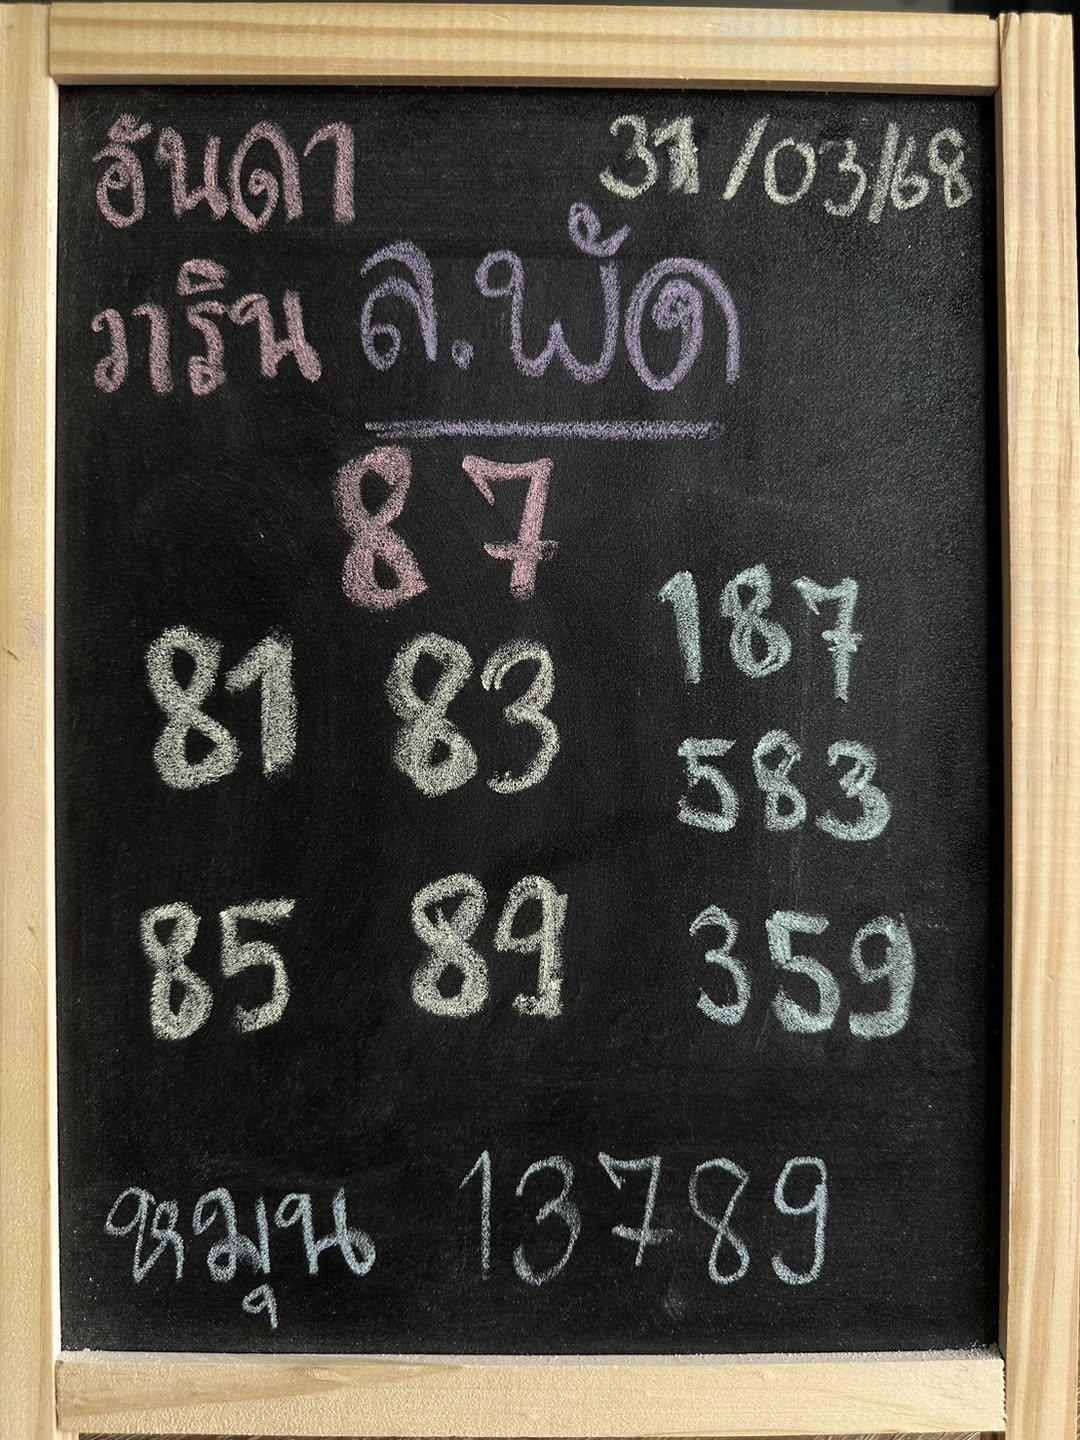 อันดา 31/03/68
วาริน ล.พัด
87
187
81 83
583
85 89
359
หมุน 13789